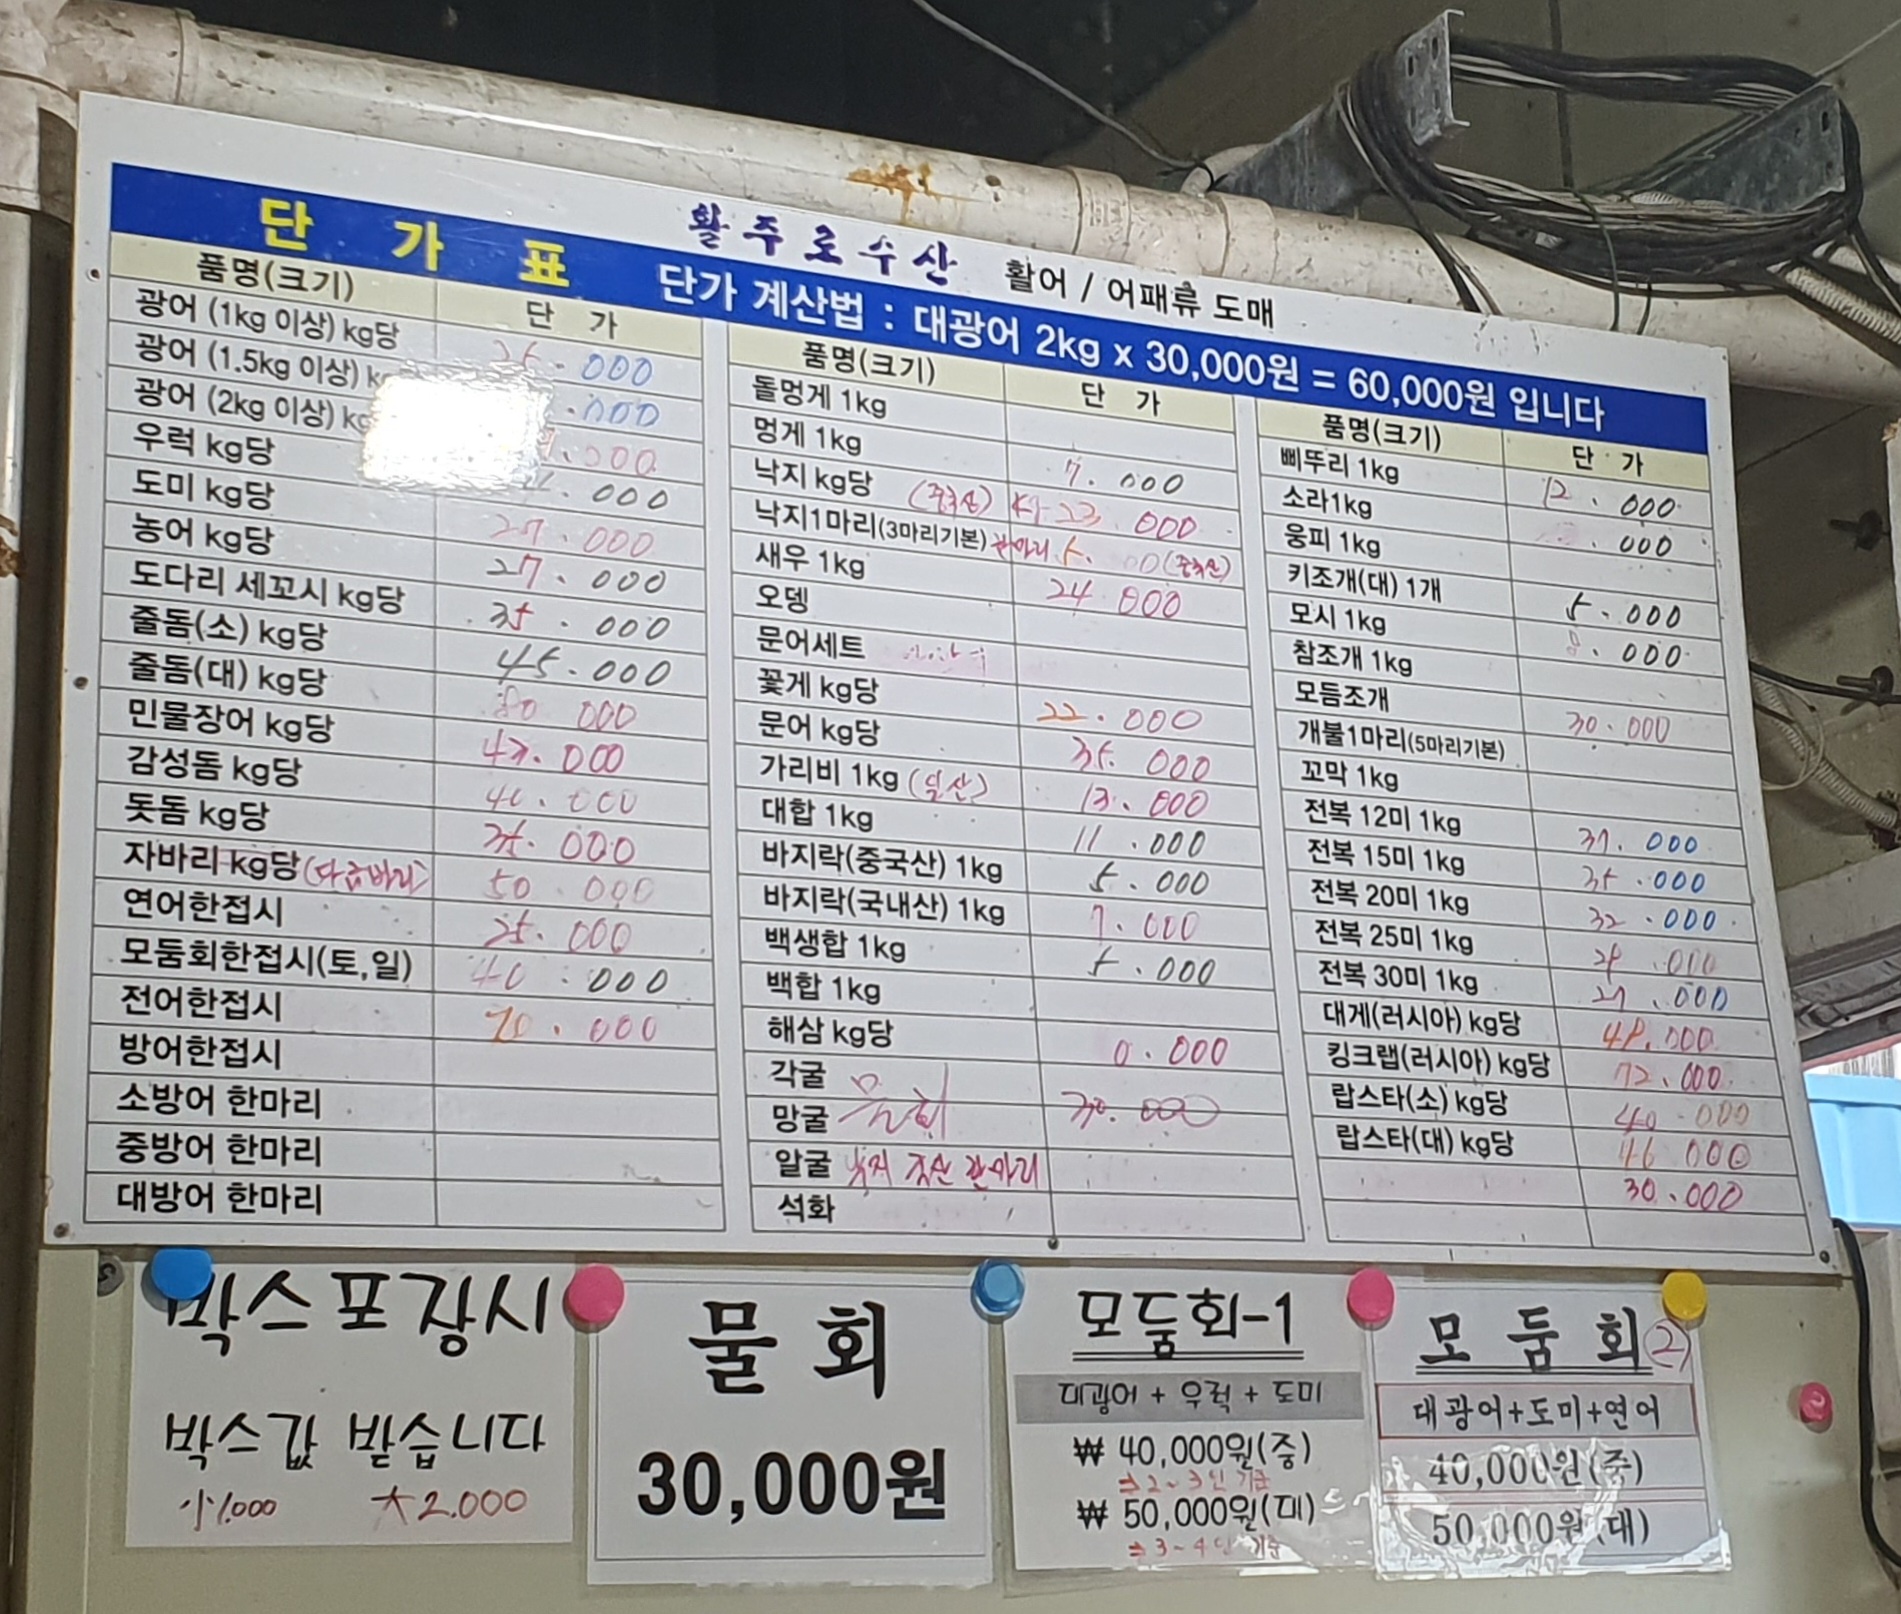 활주로수산 활어 / 어패류 도매
단 가 표 단가 계산법 : 대광어 2kg x 30,000원 = 60,000원 입니다
품명(크기) 단 가
광어 (1kg 이상) kg당 .000
광어 (1.5kg 이상) .000
광어 (2kg 이상) .000
우럭 kg당 .000
도미 kg당 27.000
농어 kg당 27.000
도다리 세꼬시 kg당 35.000
줄돔(소) kg당 45.000
줄돔(대) kg당 80 000
민물장어 kg당 47.000
감성돔 kg당 40.000
돗돔 kg당 35.000
자바리 kg당 (다금바리) 50.000
연어한접시 25.000
모둠회한접시(토,일) 40.000
전어한접시 70.000
방어한접시
소방어 한마리
중방어 한마리
대방어 한마리
품명(크기) 단 가
돌멍게 1kg
멍게 1kg 7.000
낙지 kg당 (중국산) 23.000
낙지1마리(3마리기본) 한마리 5. 00 (중국산)
새우 1kg 24 000
오뎅
문어세트
꽃게 kg당 22.000
문어 kg당 35.000
가리비 1kg (일산) 13.000
대합 1kg 11.000
바지락(중국산) 1kg 5.000
바지락(국내산) 1kg 7.000
백생합 1kg 5.000
백합 1kg
해삼 kg당 0.000
각굴
망굴 물회 30.000
알굴 낙지 중산 한마리
석화
품명(크기) 단 가
삐뚜리 1kg 12.000
소라1kg .000
웅피 1kg
키조개(대) 1개 5.000
모시 1kg 8.000
참조개 1kg
모듬조개 30.000
개불1마리(5마리기본)
꼬막 1kg
전복 12미 1kg 37.000
전복 15미 1kg 35.000
전복 20미 1kg 32.000
전복 25미 1kg .000
전복 30미 1kg 27.000
대게(러시아) kg당 48.000
킹크랩(러시아) kg당 72.000
랍스타(소) kg당 40.000
랍스타(대) kg당 46 000
30.000
박스포장시
박스값 받습니다
小1.000 大2.000
물 회
30,000원
모둠회-1
대광어 + 우럭 + 도미
₩ 40,000원(중)
⇒2~3인 기준
₩ 50,000원(대)
⇒3~4인 기준
모 둠 회 ②
대광어+도미+연어
40,000원(중)
50,000원(대)